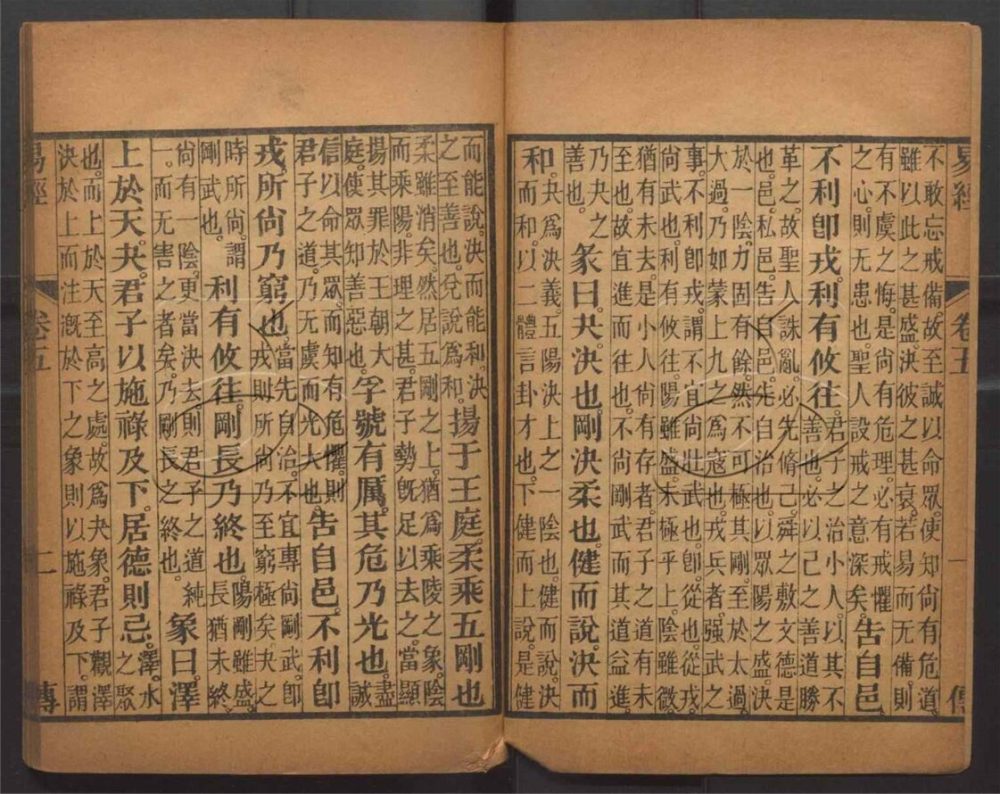 易經 卷五 一 傳
不敢忘戒備。故至誠以命眾。使知尚有危道。
雖以此之甚盛。決彼之甚衰。若易而无備。則
有不虞之悔。是尚有危理。必有戒懼
之心。則无患也。聖人設戒之意深矣。告自邑。
不利即戎。利有攸往。君子之治小人。以其不
善也。必以己之善道勝
革之。故聖人誅亂。必先脩己。舜之敷文德是
也。邑。私邑。告自邑。先自治也。以眾陽之盛。決
於一陰。力固有餘。然不可極其剛。至於太過。
大過。乃如蒙上九之為寇也。戎兵者。强武之
事。不利即戎。謂不宜尚壯武也。即。從也。從戎。
尚武也。利有攸往。陽雖盛。未極乎上。陰雖微。
猶有未去。是小人尚有存者。君子之道有未
至也。故宜進而往也。不尚剛武。而其道益進。
乃夬之善也。彖曰。夬。決也。剛決柔也。健而說。決而
和。夬為決義。五陽決上之一陰也。健而說。決
而和。以二體言卦才也。下健而上說。是健
而能說。決而能和。決
之至善也。兌說為和。揚于王庭。柔乘五剛也。
柔雖消矣。然居五剛之上。猶為乘陵之象。陰
而乘陽。非理之甚。君子勢既足以去之。當顯
揚其罪於王朝大
庭。使眾知善惡也。孚號有厲。其危乃光也。盡誠
信以命其眾。而知有危懼。則
君子之道。乃无虞而光大也。告自邑。不利即
戎。所尚乃窮也。當先自治。不宜專尚剛武。即
戎則所尚乃至窮極矣。夬之
時所尚。謂
剛武也。利有攸往。剛長乃終也。陽剛雖盛。
長猶未終。
尚有一陰。更當決去。則君子之道純
一。而无害之者矣。乃剛長之終也。象曰。澤
上於天。夬。君子以施祿及下。居德則忌。澤。水
之聚
也。而上於天至高之處。故為夬象。君子觀澤
決於上。而注溉於下之象。則以施祿及下。謂
易經 卷五 二 傳